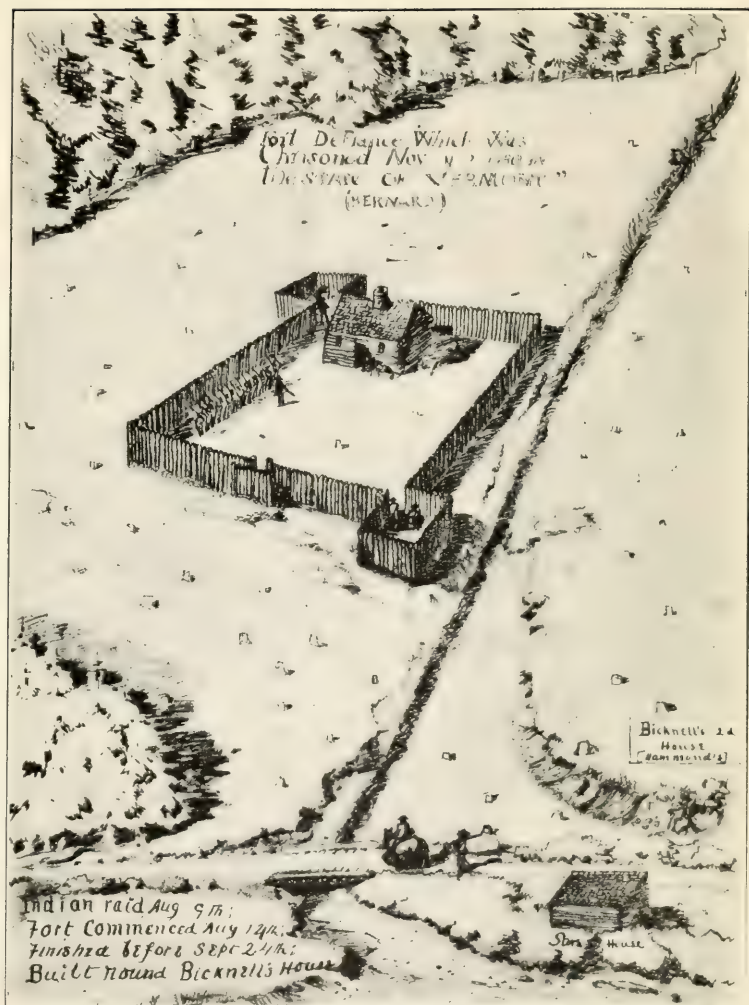 Fort Defiance Which Was
Chrisoned Nov
the STATE OF VERMONT"
(BERNARD)
Bicknell's 2d
House
[Hammond's]
Indian raid Aug 9th;
Fort Commenced Aug 14th;
Finished before Sept 24th;
Built round Bicknell's House
House